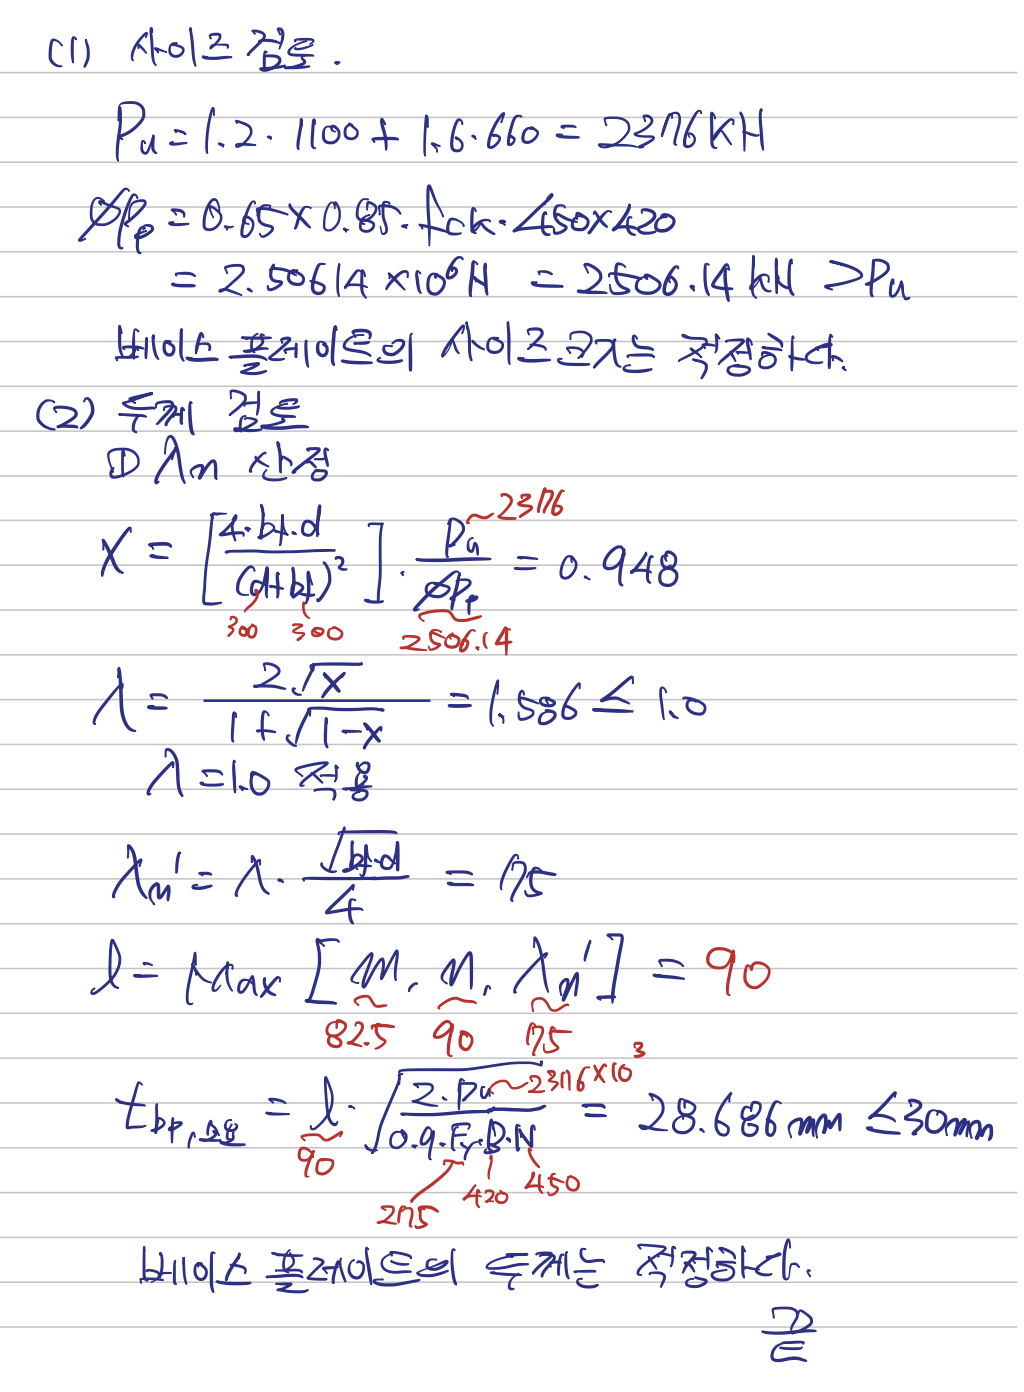 (1) 사이즈 검토.
Pu = 1.2 · 1100 + 1.6 · 660 = 2376 KH
øPp = 0.65 × 0.85 · fck · 450×420
= 2.50614 ×10⁶ N = 2506.14 kN > Pu
베이스 플레이트의 사이즈 크기는 적정하다.
(2) 두께 검토
① λn 산정
X = [4·bf·d / (d+bf)²] · Pu / øPp = 0.948
2376
300 300 2506.14
λ = 2√x / 1+√1-x = 1.586 ≤ 1.0
λ = 1.0 적용
λn' = λ · √bf·d / 4 = 75
l = Max [m, n, λn'] = 90
82.5 90 75
tbp,소용 = l · √2·Pu / 0.9·Fy·B·N = 28.686mm ≤ 30mm
2376×10³
90 275 420 450
베이스 플레이트의 두께는 적정하다.
끝